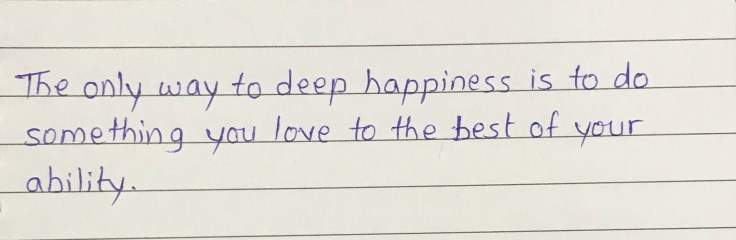 The only way to deep happiness is to do
something you love to the best of your
ability.